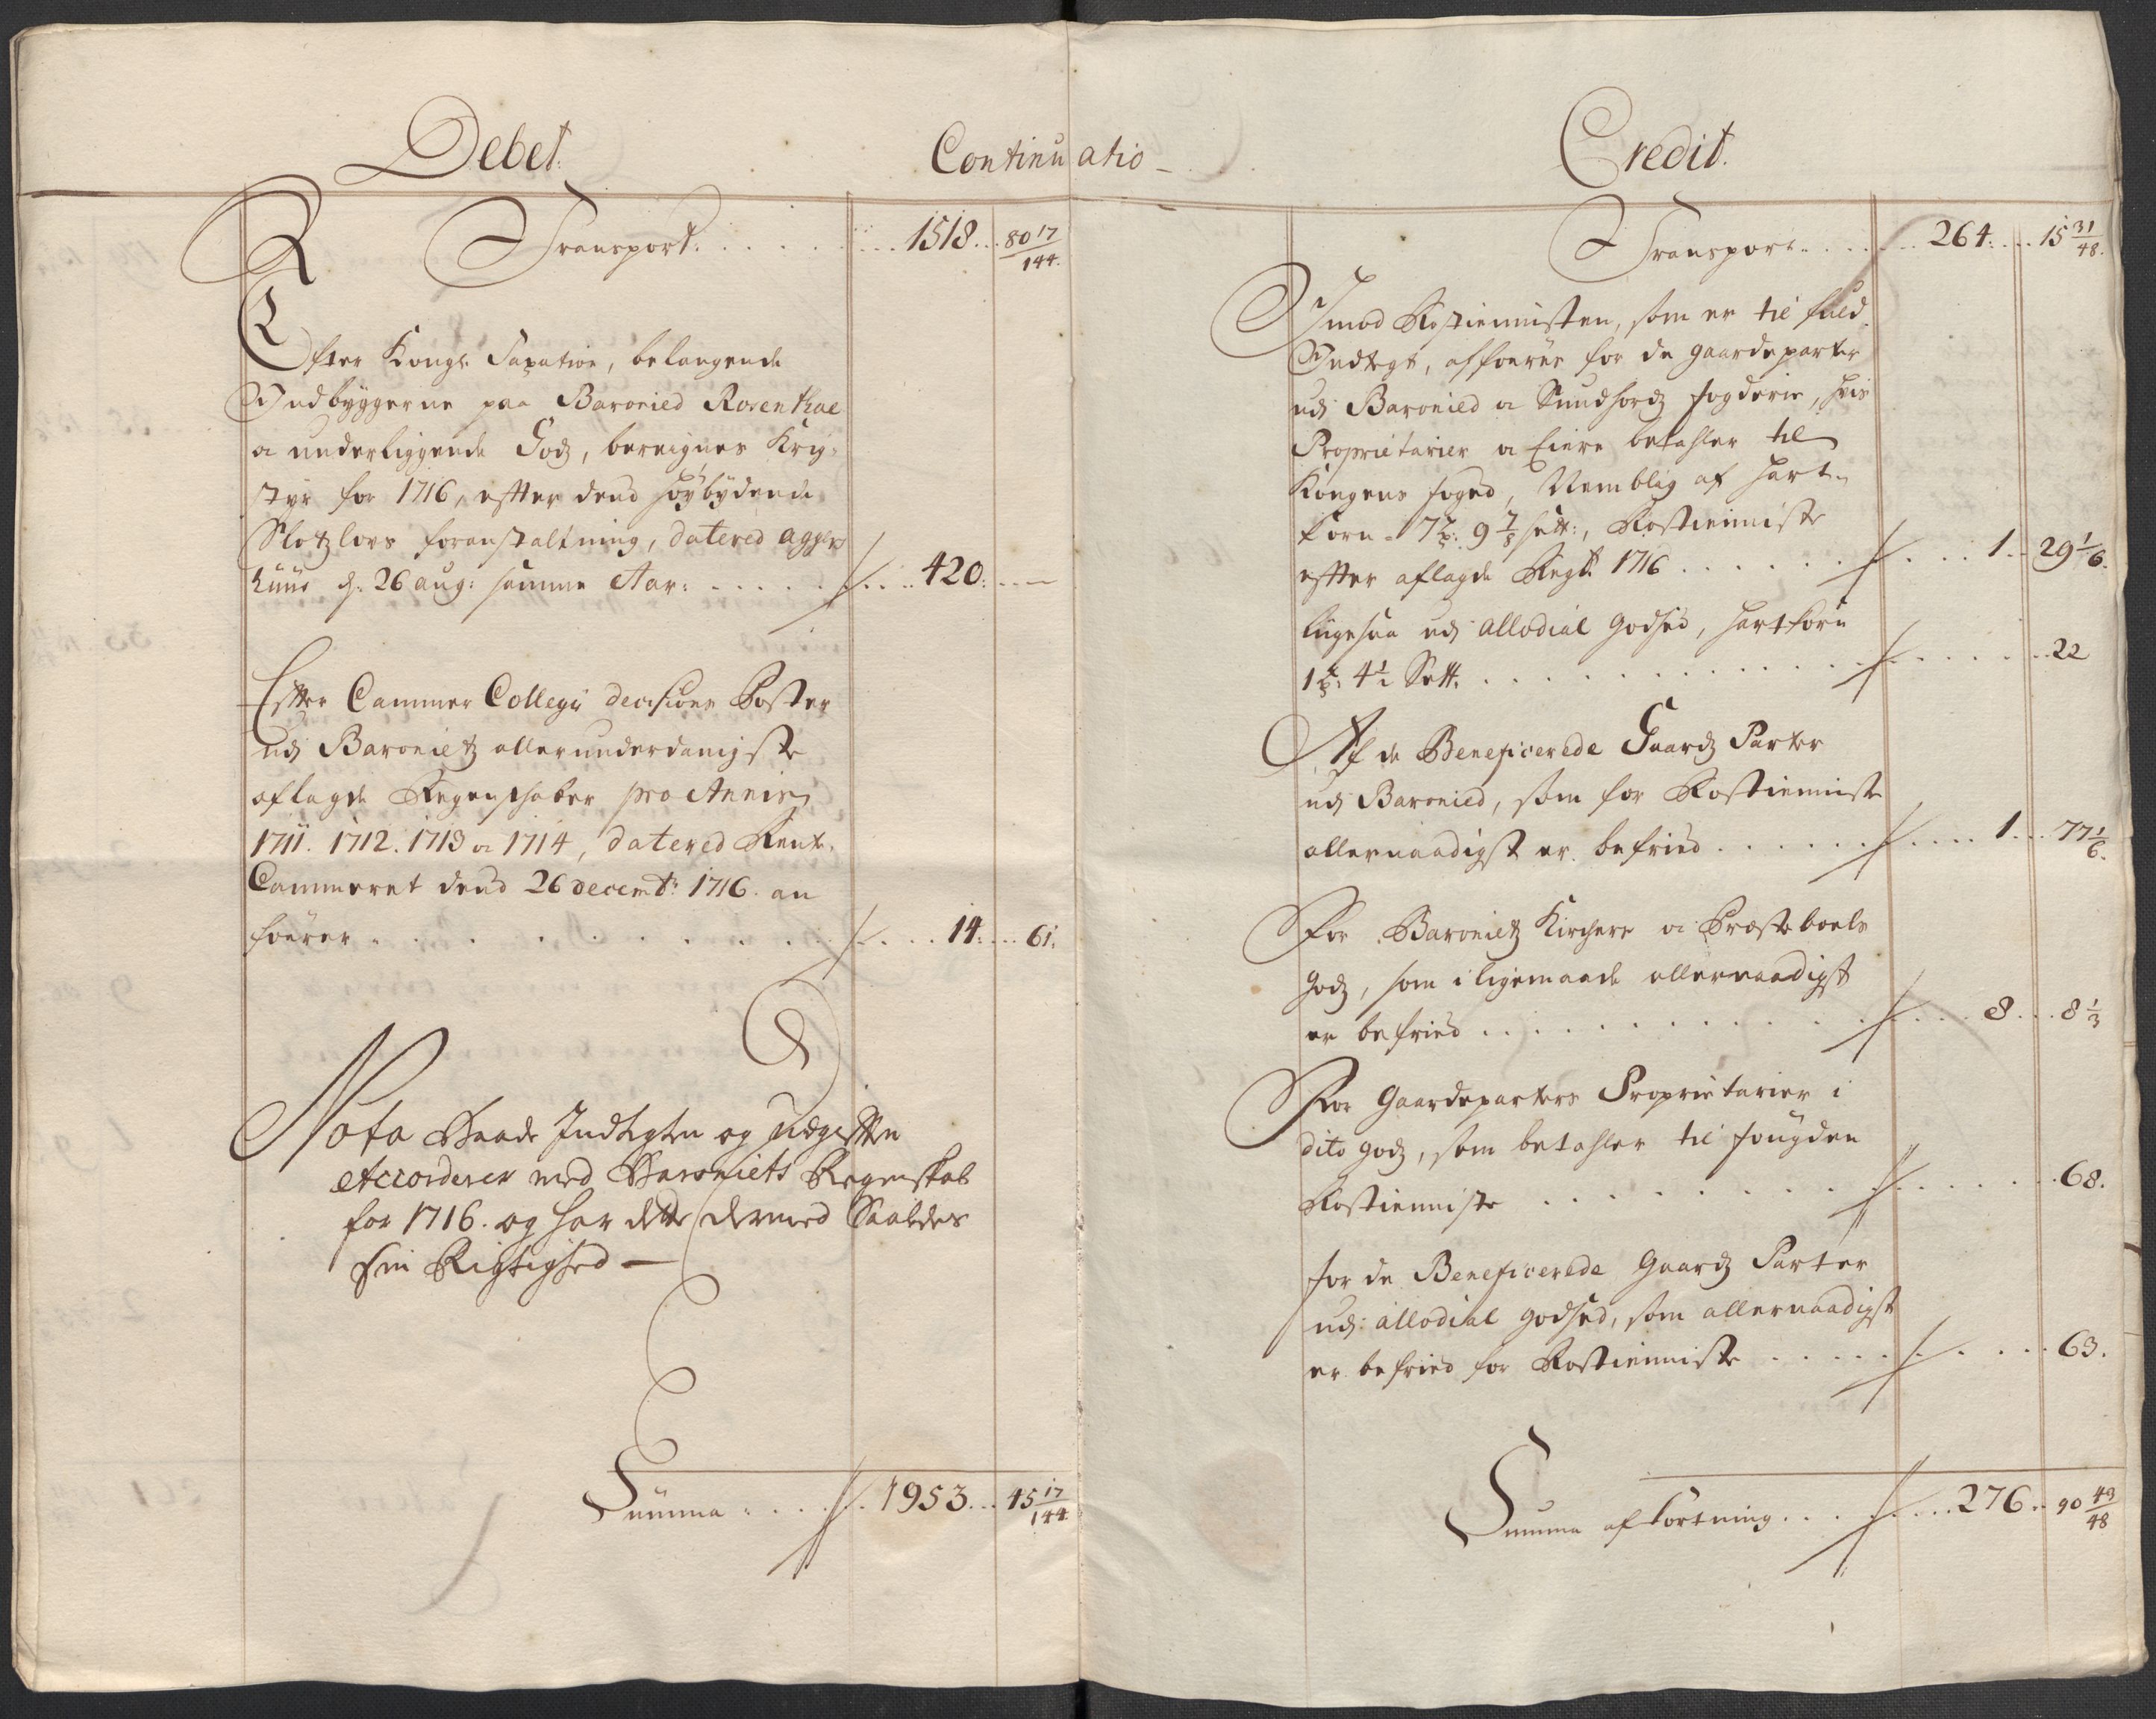 Debet.
Continuatio
Transport. . . . . . . 1518. . 80 17/144.
Efter Kongl. Taxation, belangende
Indbyggerne paa Baronied Rosenthal
oc underliggende Godz, beregnes Krig-
styr for 1716, efter dend höybydende
Slotzlovs foranstaltning, datered Agger-
huus d: 26 aug: samme Aar: . . . . . 420. . —
Efter Cammer Collegii decisions Poster
udj Baronietz allerunderdanigste
aflagde Regenskaber pro Annis
1711. 1712. 1713 oc 1714, datered Rente-
Cammeret dend 26 decembr: 1716. an
föerer . . . . . . . . . 14. . . 61.
Nota Baade Indtegten og udgiften
Accorderer med Baroniets Regenskab
for 1716. og har dette dermed Saaledes
sin Rigtighed —
Summa . . . . 1953. . . 45 17/144
Credit.
Transport. . . . . . 264. . . 15 31/48.
Imod Rostienniste, som er til fuld
Indtegt, affoeres for de gaardeparter
udj Baronied oc Sundhordz fogderie, hvis
Proprietarier oc Eiere betahler til
Kongens foged, Nemblig af hart-
korn - 7 p: 9 7/8 sett:, Rostienniste
efter aflagde Regl: 1716 . . . . . . 1. . 29 1/6.
Liigesaa udj allodial godsed, hartkorn
1 p: 4 1/2 Sett. . . . . . . . . . . 22
Af de Beneficerede Gaardz Parter
udj Baronied, som for Rostienniste
allernaadigst er befried . . . . . . 1. . . 77 1/6.
For Baronietz Kirchers oc Præsteboels
godz, som i ligemaade allernaadigst
er befried . . . . . . . . . . 8. . . 8 1/3
For Gaardeparters Proprietarier i
dito godz, som betahler til fougden
Rostienniste . . . . . . . . . 68.
for de Beneficerede Gaardz Parter
udj allodial godsed, som allernaadigst
er befried for Rostienniste . . . . . 63.
Summa afkortning. . . . . . . 276. . 90 43/48